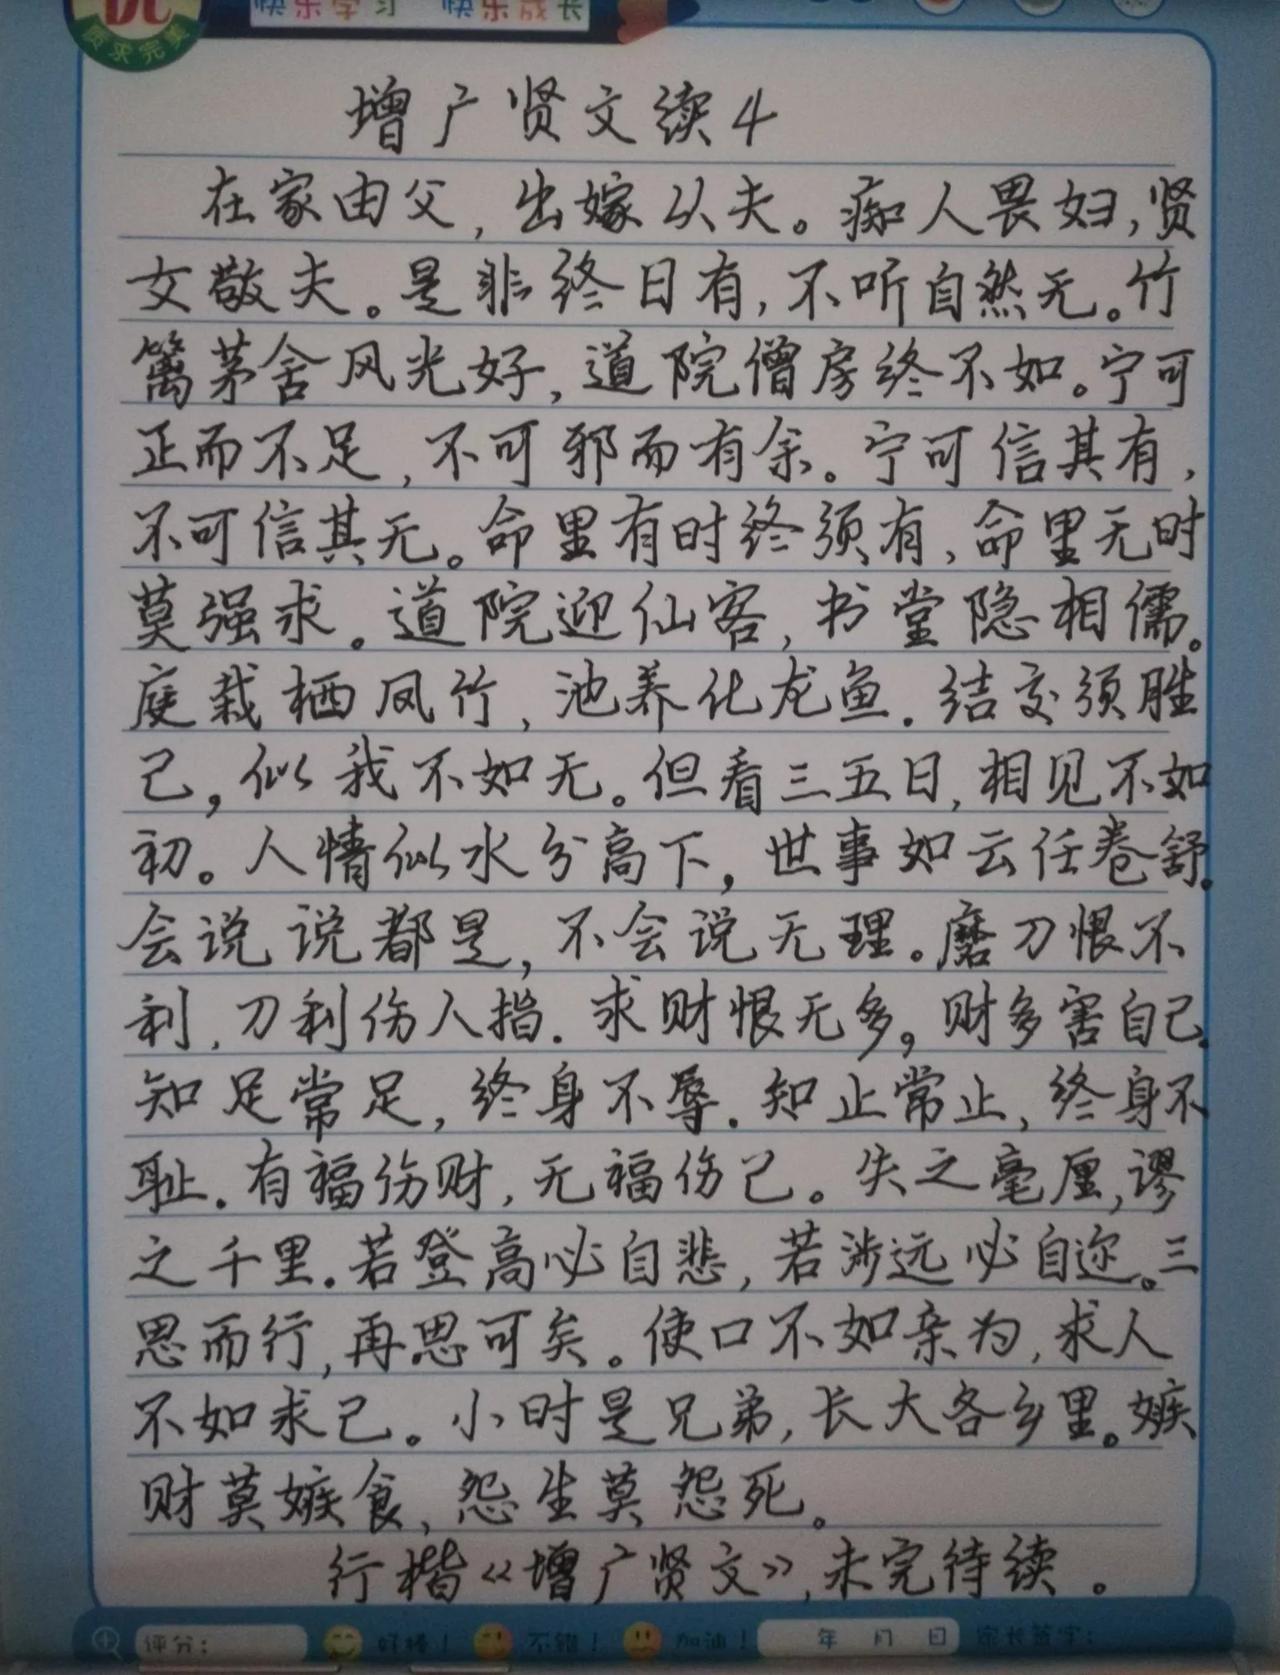 快乐学习 快乐成长
质采完美
增广贤文读4
在家由父，出嫁从夫。痴人畏妇，贤
女敬夫。是非终日有，不听自然无。竹
篱茅舍风光好，道院僧房终不如。宁可
正而不足，不可邪而有余。宁可信其有，
不可信其无。命里有时终须有，命里无时
莫强求。道院迎仙客，书堂隐相儒。
庭栽栖凤竹，池养化龙鱼．结交须胜
己，似我不如无。但看三五日，相见不如
初。人情似水分高下，世事如云任卷舒．
会说说都是，不会说无理。磨刀恨不
利，刀利伤人指．求财恨无多，财多害自己．
知足常足，终身不辱．知止常止，终身不
耻．有福伤财，无福伤己。失之毫厘，谬
之千里．若登高必自悲，若涉远必自迩。三
思而行，再思可矣。使口不如亲为，求人
不如求己。小时是兄弟，长大各乡里。嫉
财莫嫉食，怨生莫怨死。
行楷《增广贤文》，未完待读。
评分： 好棒！ 不错！ 加油！ 年 月 日 家长签字：